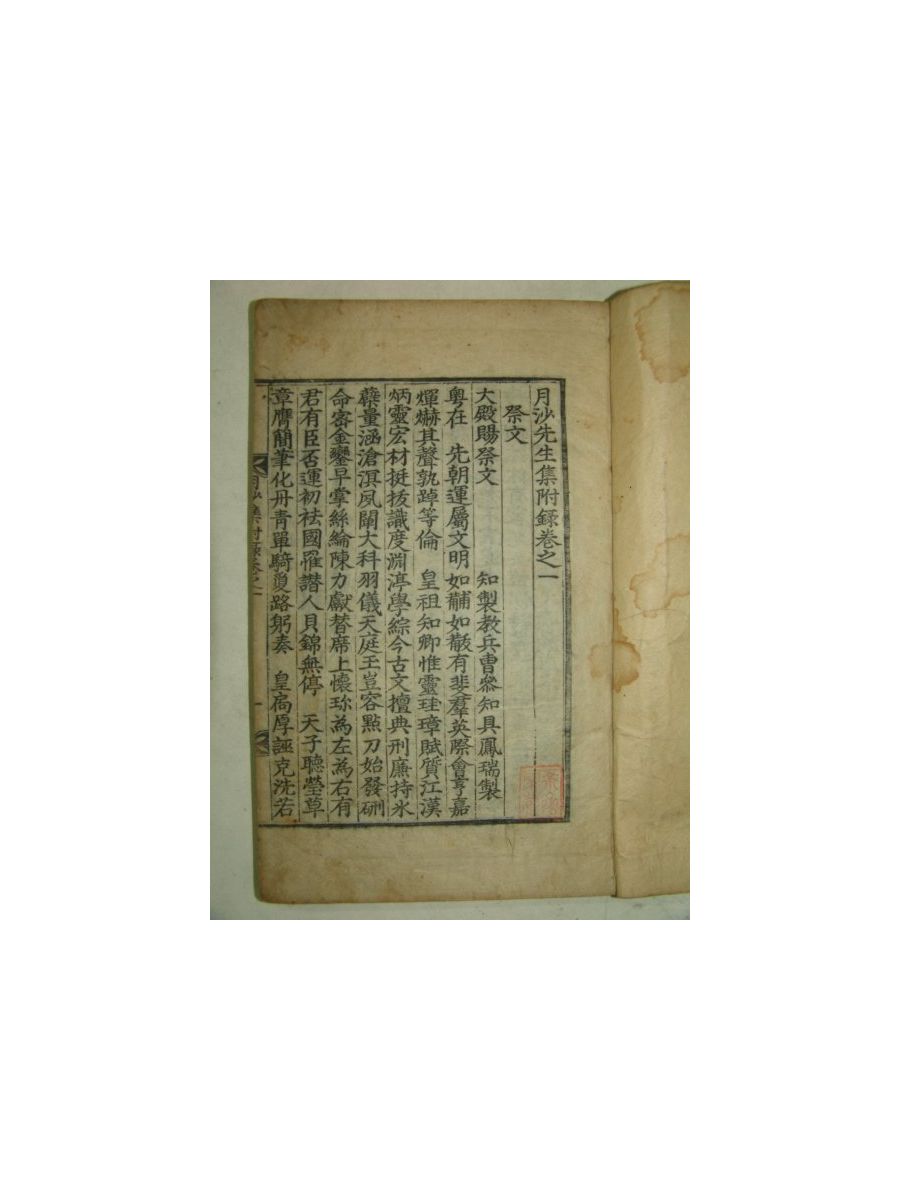 月沙先生集附錄卷之一
祭文
大殿賜祭文 知製教兵曹參知具鳳瑞製
粤在 先朝運屬文明如黼如黻有斐羣英際會亨嘉
燀爀其聲孰踔等倫 皇祖知卿惟靈珪璋賦質江漢
炳靈宏材挺拔識度淵渟學綜今古文擅典刑廉持氷
蘗量涵滄溟夙闡大科羽儀天庭玉豈容點刀始發硎
命審金鑾早掌絲綸陳力獻替席上懷珎為左為右有
君有臣否運初袪國罹譖人貝錦無停 天子聽瑩草
章膺簡筆化丹青單騎夐路躬奏 皇扃厚誣克洗若
月沙集附錄卷之一 一